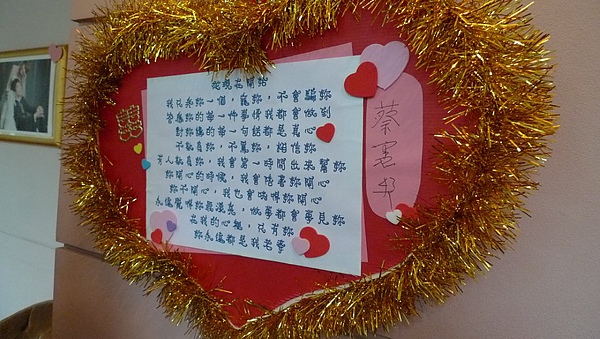 從現在開始
我只疼妳一個，寵妳，不會騙妳
答應妳的每一件事情我都會做到
對妳講的每一句話都是真心
不欺負妳，不罵妳，相信妳
有人欺負妳，我會第一時間出來幫妳
妳開心的時候，我會陪著妳開心
妳不開心，我也會哄得妳開心
永遠覺得妳最漂亮，做夢都會夢見妳
在我的心裡，只有妳
妳永遠都是我老婆
囍
蔡